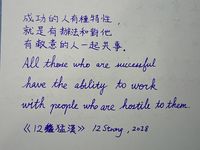 成功的人有種特性，
就是有辦法和對他
有敵意的人一起共事。
All those who are successful
have the ability to work
with people who are hostile to them.
《12猛漢》 12 Strong, 2018